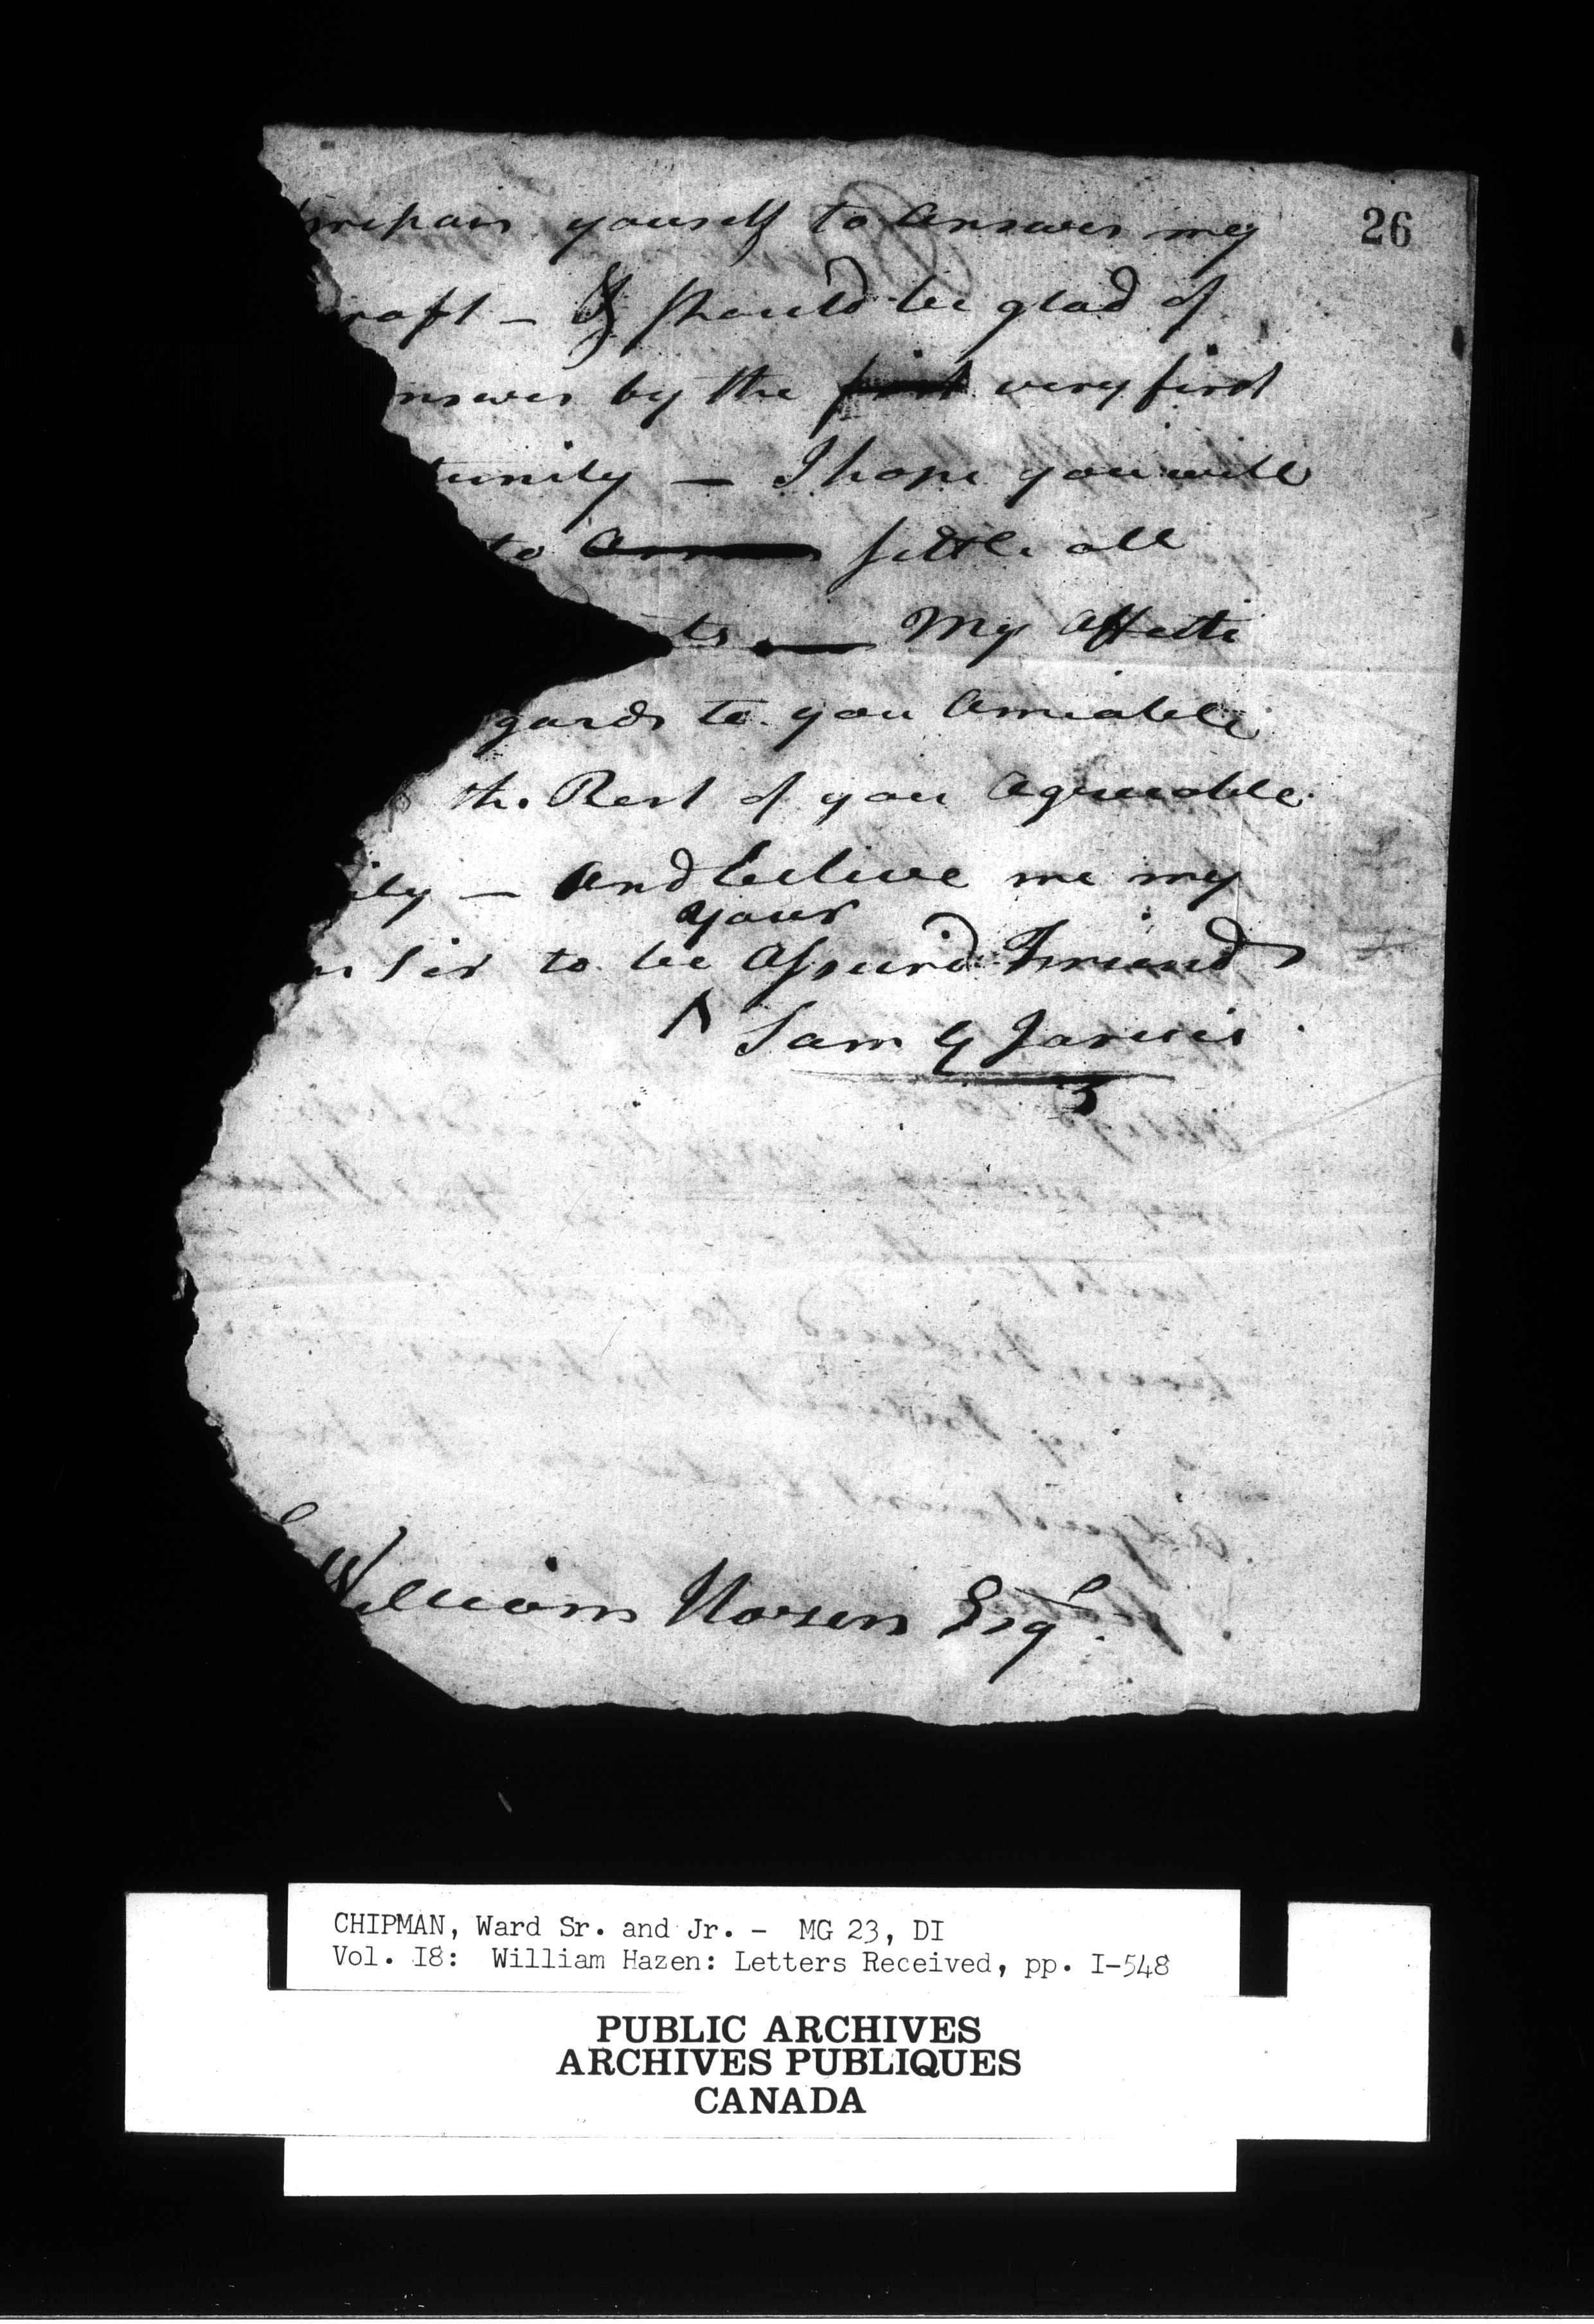 26
prepair youself to Answer my
raft - I should be glad of
nswer by the first very first
tunity - I hope you will
to settle all
ts - My Affecte
gards to you Amiable
the Rest of you Agreeable
ily - And believe me my
your
r Sir to be Assured Friend
^ Sam G Jarvis
William Hazen Esqr.
CHIPMAN, Ward Sr. and Jr. - MG 23, DI
Vol. I8: William Hazen: Letters Received, pp. I-548
PUBLIC ARCHIVES
ARCHIVES PUBLIQUES
CANADA